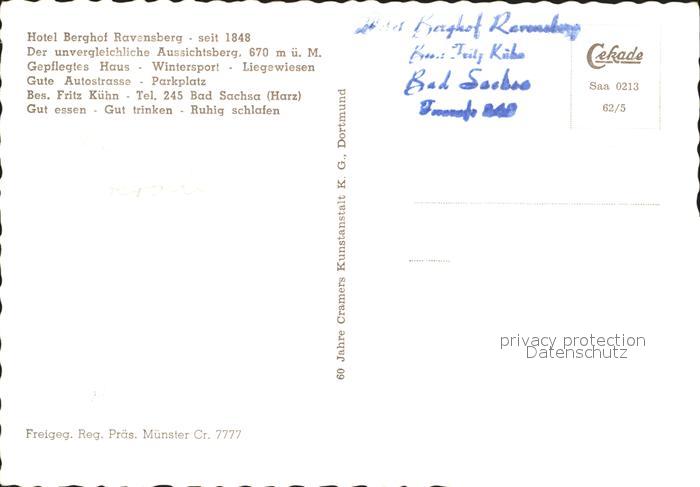 Hotel Berghof Ravensberg - seit 1848
Der unvergleichliche Aussichtsberg, 670 m ü. M.
Gepflegtes Haus - Wintersport - Liegewiesen
Gute Autostrasse - Parkplatz
Bes. Fritz Kühn - Tel. 245 Bad Sachsa (Harz)
Gut essen - Gut trinken - Ruhig schlafen
60 Jahre Cramers Kunstanstalt K. G., Dortmund
Hotel Berghof Ravensberg
Bes.: Fritz Kühn
Bad Sachsa
Cekade
Saa 0213
62/5
privacy protection
Datenschutz
Freigeg. Reg. Präs. Münster Cr. 7777